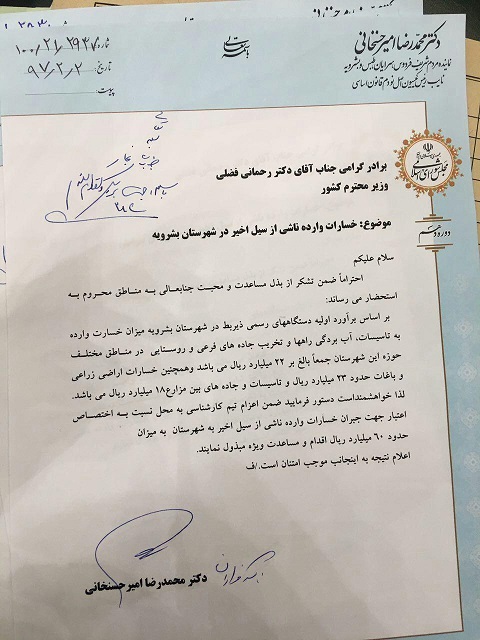 دکتر محمدرضا امیرحسنخانی
نماینده مردم شریف فردوس، سرایان، طبس و بشرویه
نایب رئیس کمیسیون اصل نودم قانون اساسی
باسمه تعالی
شماره: ۱۰۰/۲۱/۲۹۴۷
تاریخ: ۹۷/۲/۲
پیوست:
مجلس شورای اسلامی
دوره دهم
برادر گرامی جناب آقای دکتر رحمانی فضلی
وزیر محترم کشور
موضوع: خسارات وارده ناشی از سیل اخیر در شهرستان بشرویه
سلام علیکم
احتراماً ضمن تشکر از بذل مساعدت و محبت جنابعالی به مناطق محروم به
استحضار می رساند:
بر اساس برآورد اولیه دستگاههای رسمی ذیربط در شهرستان بشرویه میزان خسارت وارده
به تاسیسات، آب بردگی راهها و تخریب جاده های فرعی و روستایی در مناطق مختلف
حوزه این شهرستان جمعاً بالغ بر ۲۲ میلیارد ریال می باشد وهمچنین خسارات اراضی زراعی
و باغات حدود ۲۳ میلیارد ریال و تاسیسات و جاده های بین مزارع۱۸ میلیارد ریال می باشد.
لذا خواهشمنداست دستور فرمایید ضمن اعزام تیم کارشناسی به محل نسبت به اختصاص
اعتبار جهت جبران خسارات وارده ناشی از سیل اخیر به شهرستان به میزان
حدود ۶۰ میلیارد ریال اقدام و مساعدت ویژه مبذول نمایند.
اعلام نتیجه به اینجانب موجب امتنان است./ف
دکتر محمدرضا امیرحسنخانی